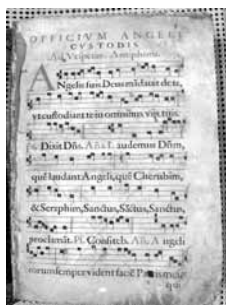 OFFICIVM ANGELI
CVSTODIS
Ad Vesperam. Antiphona.
ANgelis suis Deus mādauit de te,
vt custodiant te in omnibus vijs tuis.
Ps. Dixit Dñs. Aña. Laudemus Dñm,
quē laudant Angeli, quē Cherubim,
& Seraphim, Sanctus, Sāctus, Sanctus,
proclamāt. Ps. Confiteb. Añ. Angeli
eorum semper vident faciē Patris mei
qui